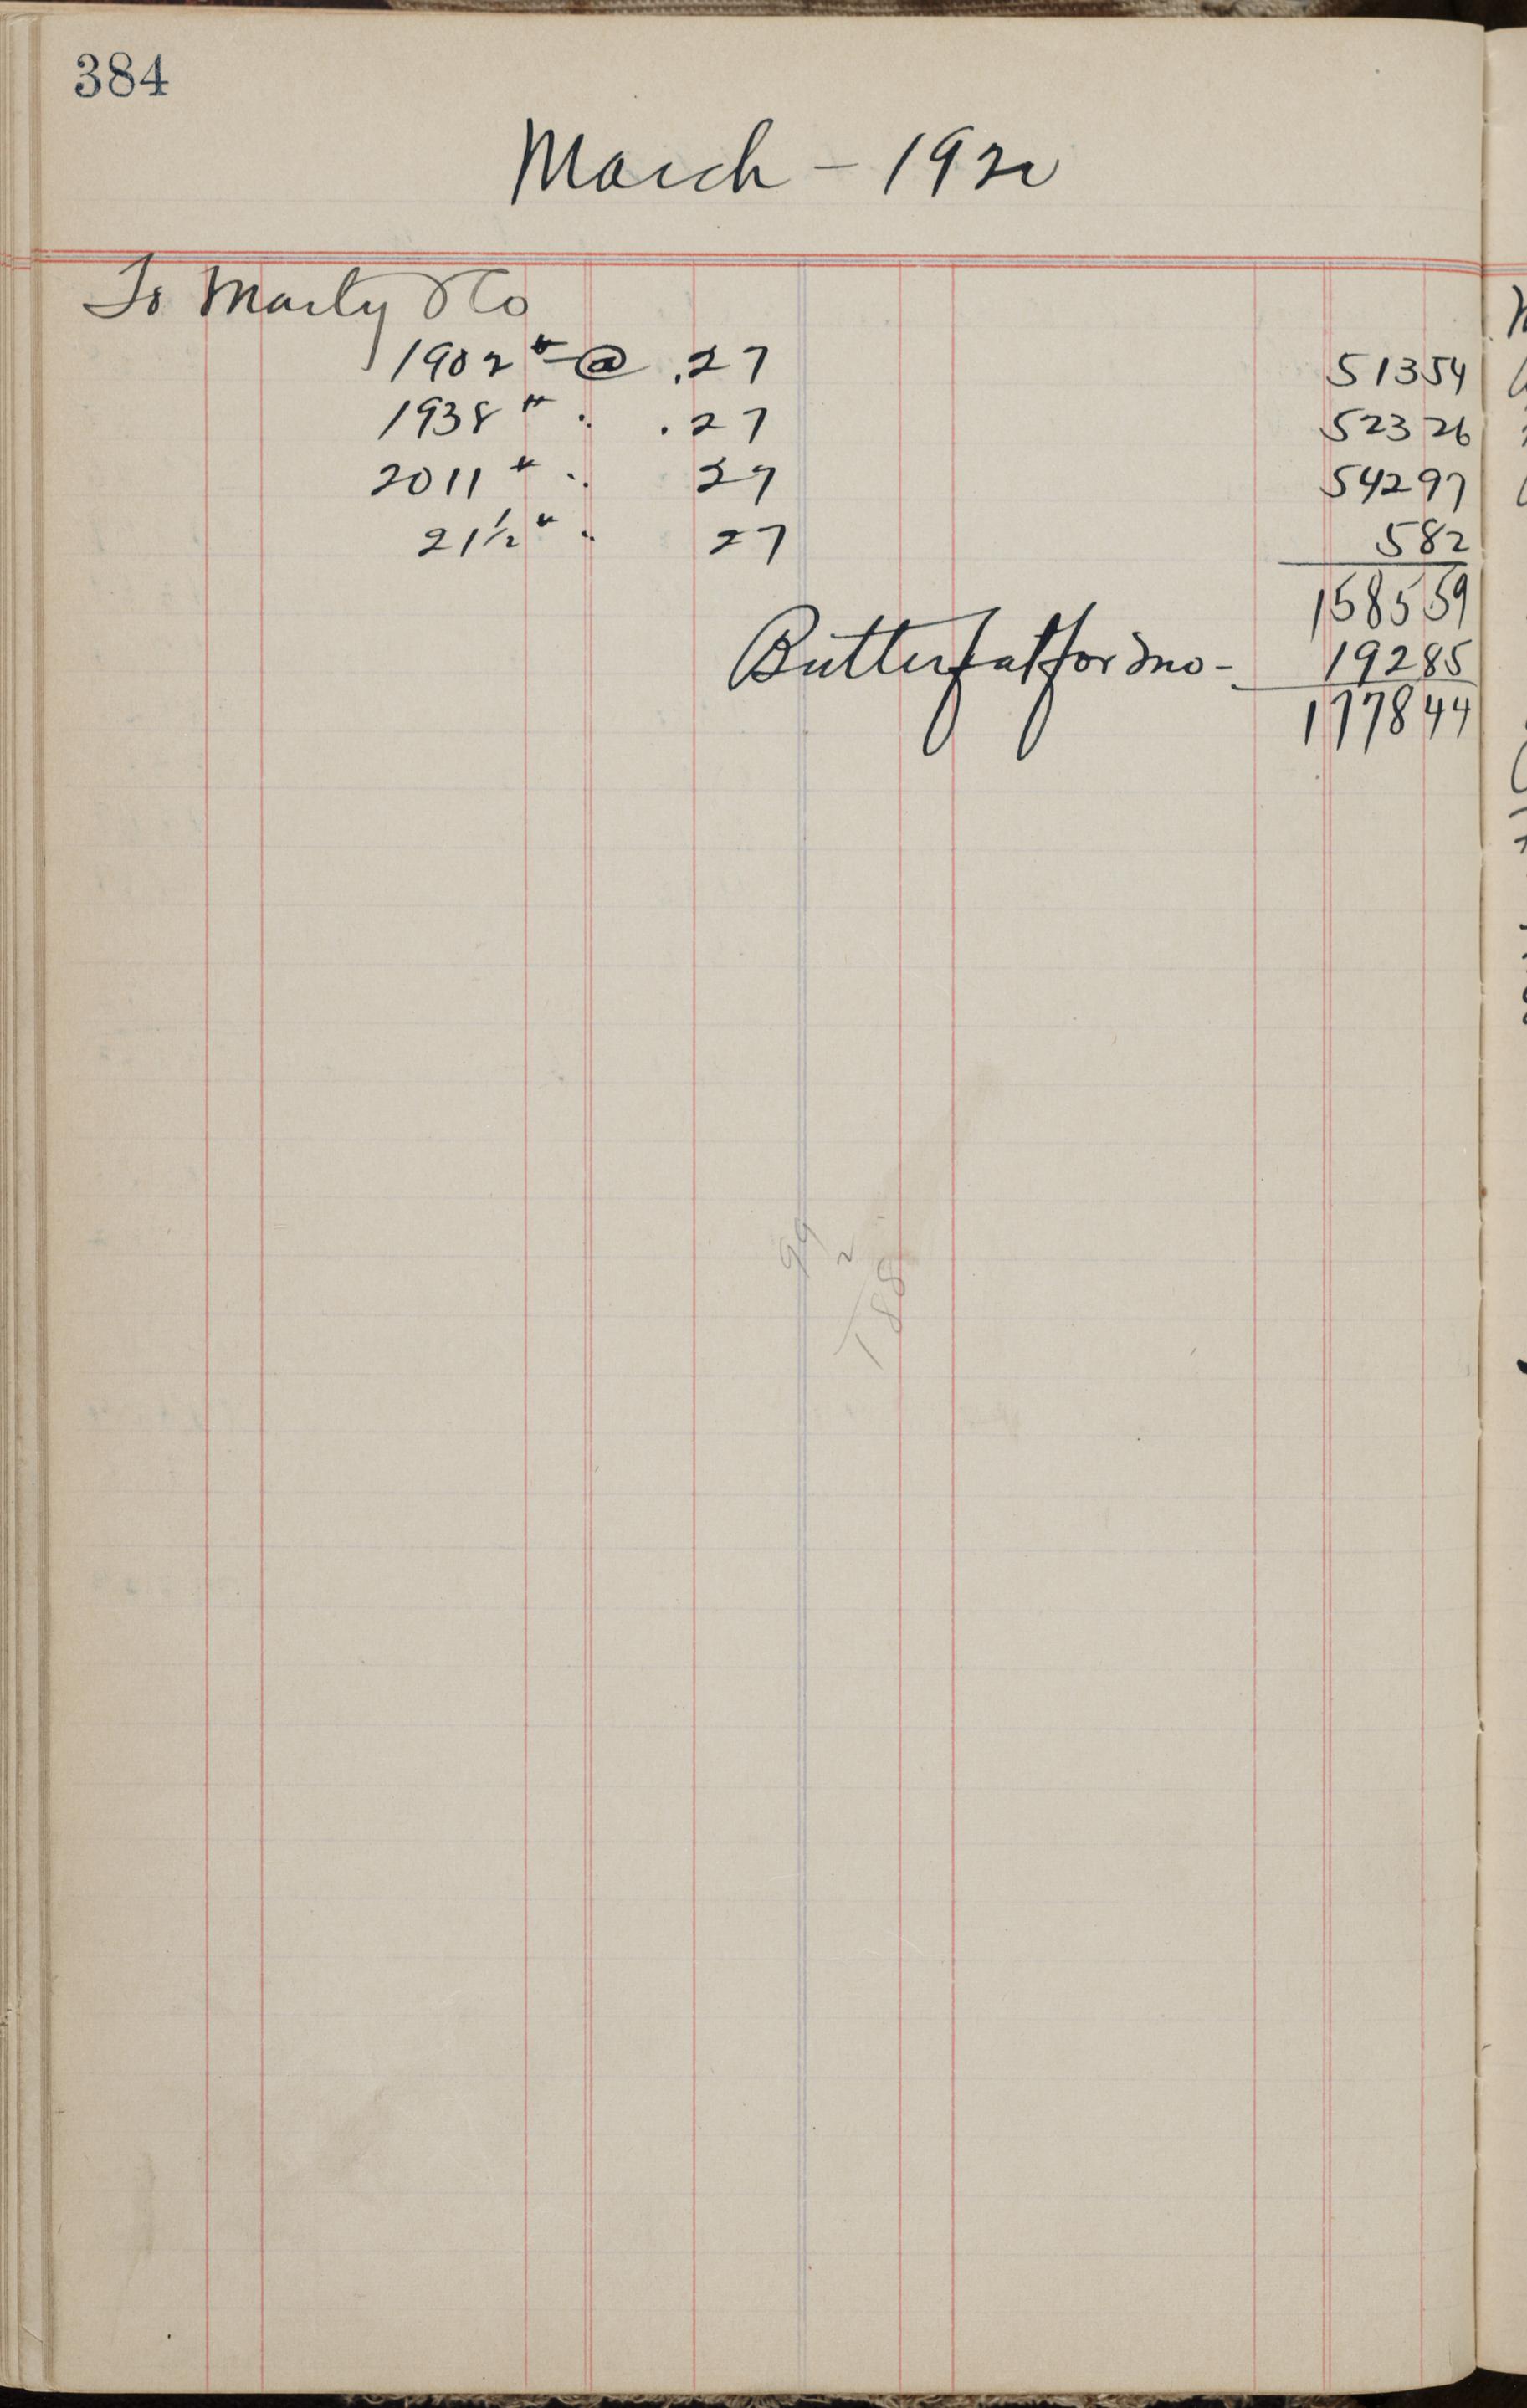 384
March - 1920
To Marty & Co
1902 # @ .27 51354
1938 # " .27 52326
2011 # " 27 54297
21½ # " 27 582
158559
Butterfat for mo- 19285
177844
99
2
188